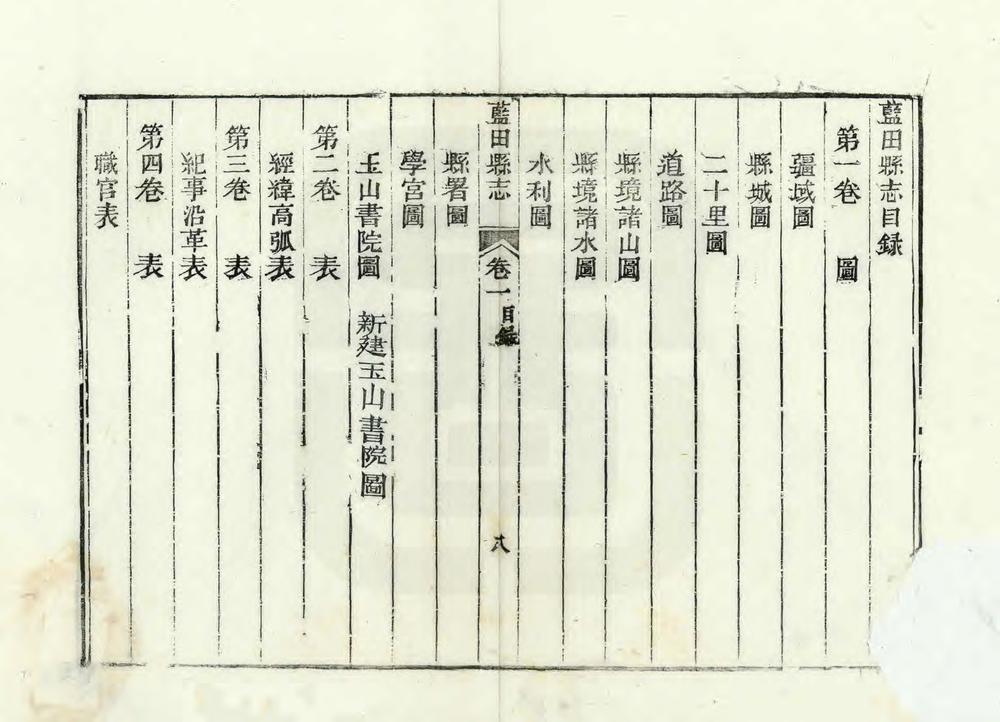 藍田縣志目録
第一卷 圖
疆域圖
縣城圖
二十里圖
道路圖
縣境諸山圖
縣境諸水圖
水利圖
藍田縣志 卷一目録 八
縣署圖
學宮圖
玉山書院圖 新建玉山書院圖
第二卷 表
經緯高弧表
第三卷 表
紀事沿革表
第四卷 表
職官表